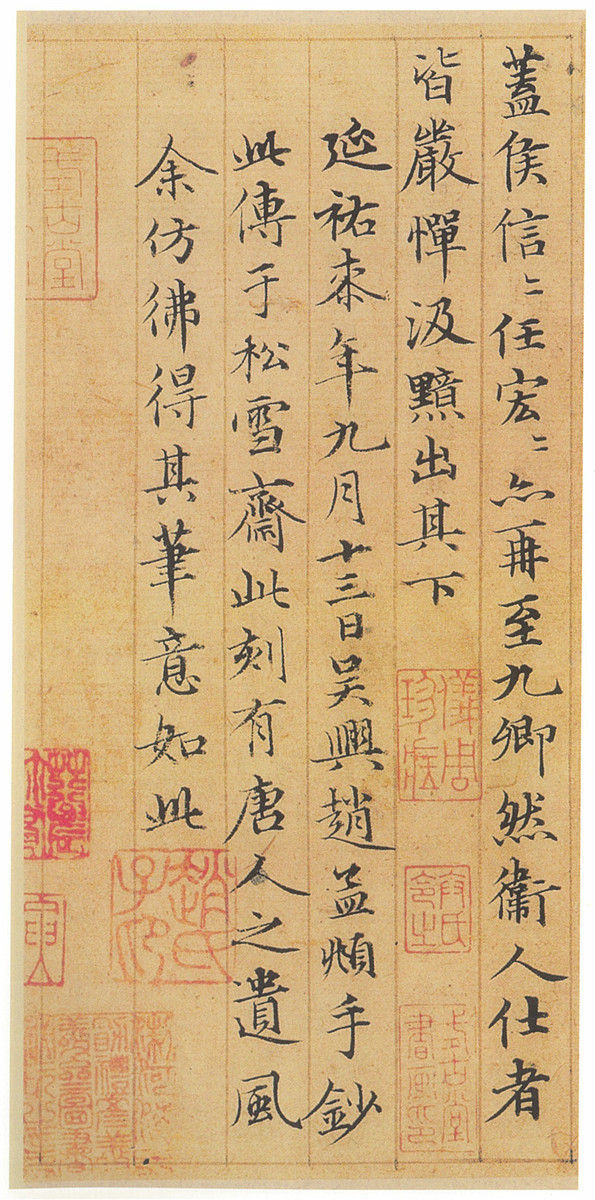 蓋侯信〻任宏〻亦再至九卿然衛人仕者
皆嚴憚汲黯出其下
延祐桼年九月十三日吳興趙孟頫手鈔
此傳于松雪齋此刻有唐人之遺風
余仿彿得其筆意如此
儀周珍藏
趙氏子昂